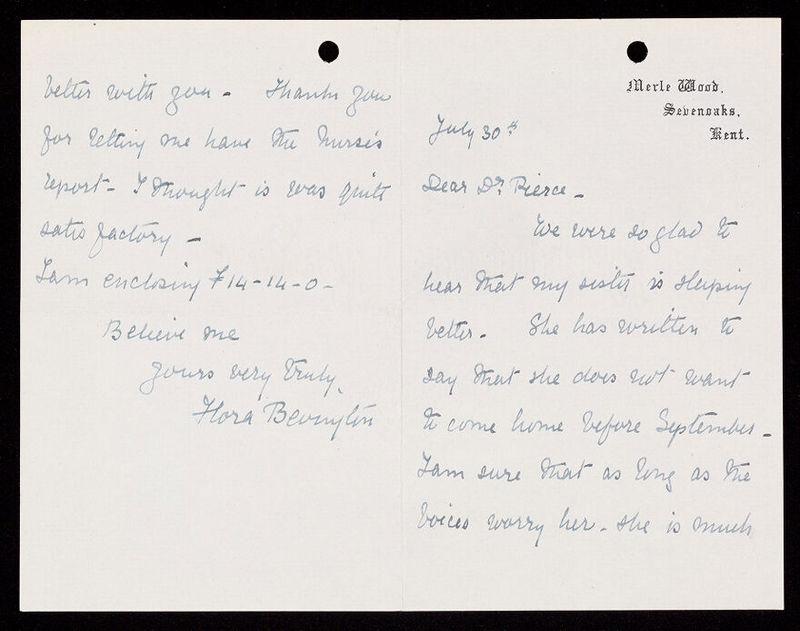 Merle Wood,
Sevenoaks,
Kent.
July 30th
Dear Dr. Pierce -
We were so glad to
hear that my sister is sleeping
better - She has written to
say that she does not want
to come home before September -
I am sure that as long as the
Voices worry her - she is much
better with you - Thank you
for letting me have the Nurse's
report - I thought is was quite
satisfactory -
I am enclosing £14-14-0 -
Believe me
yours very truly,
Flora Bevington